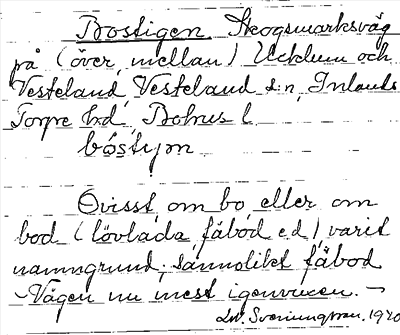 Bostigen. Skogsmarksväg
på (över, mellan) Ucklum och
Vesteland, Vesteland s:n, Inlands
Torpe hd, Bohus l.
bóstịjm
Ovisst, om bo eller om
bod (lövlada, fäbod e.d.) varit
namngrund; sannolikt fäbod
- Vägen nu mest igenvuxen. -
Sveningsson. 1920